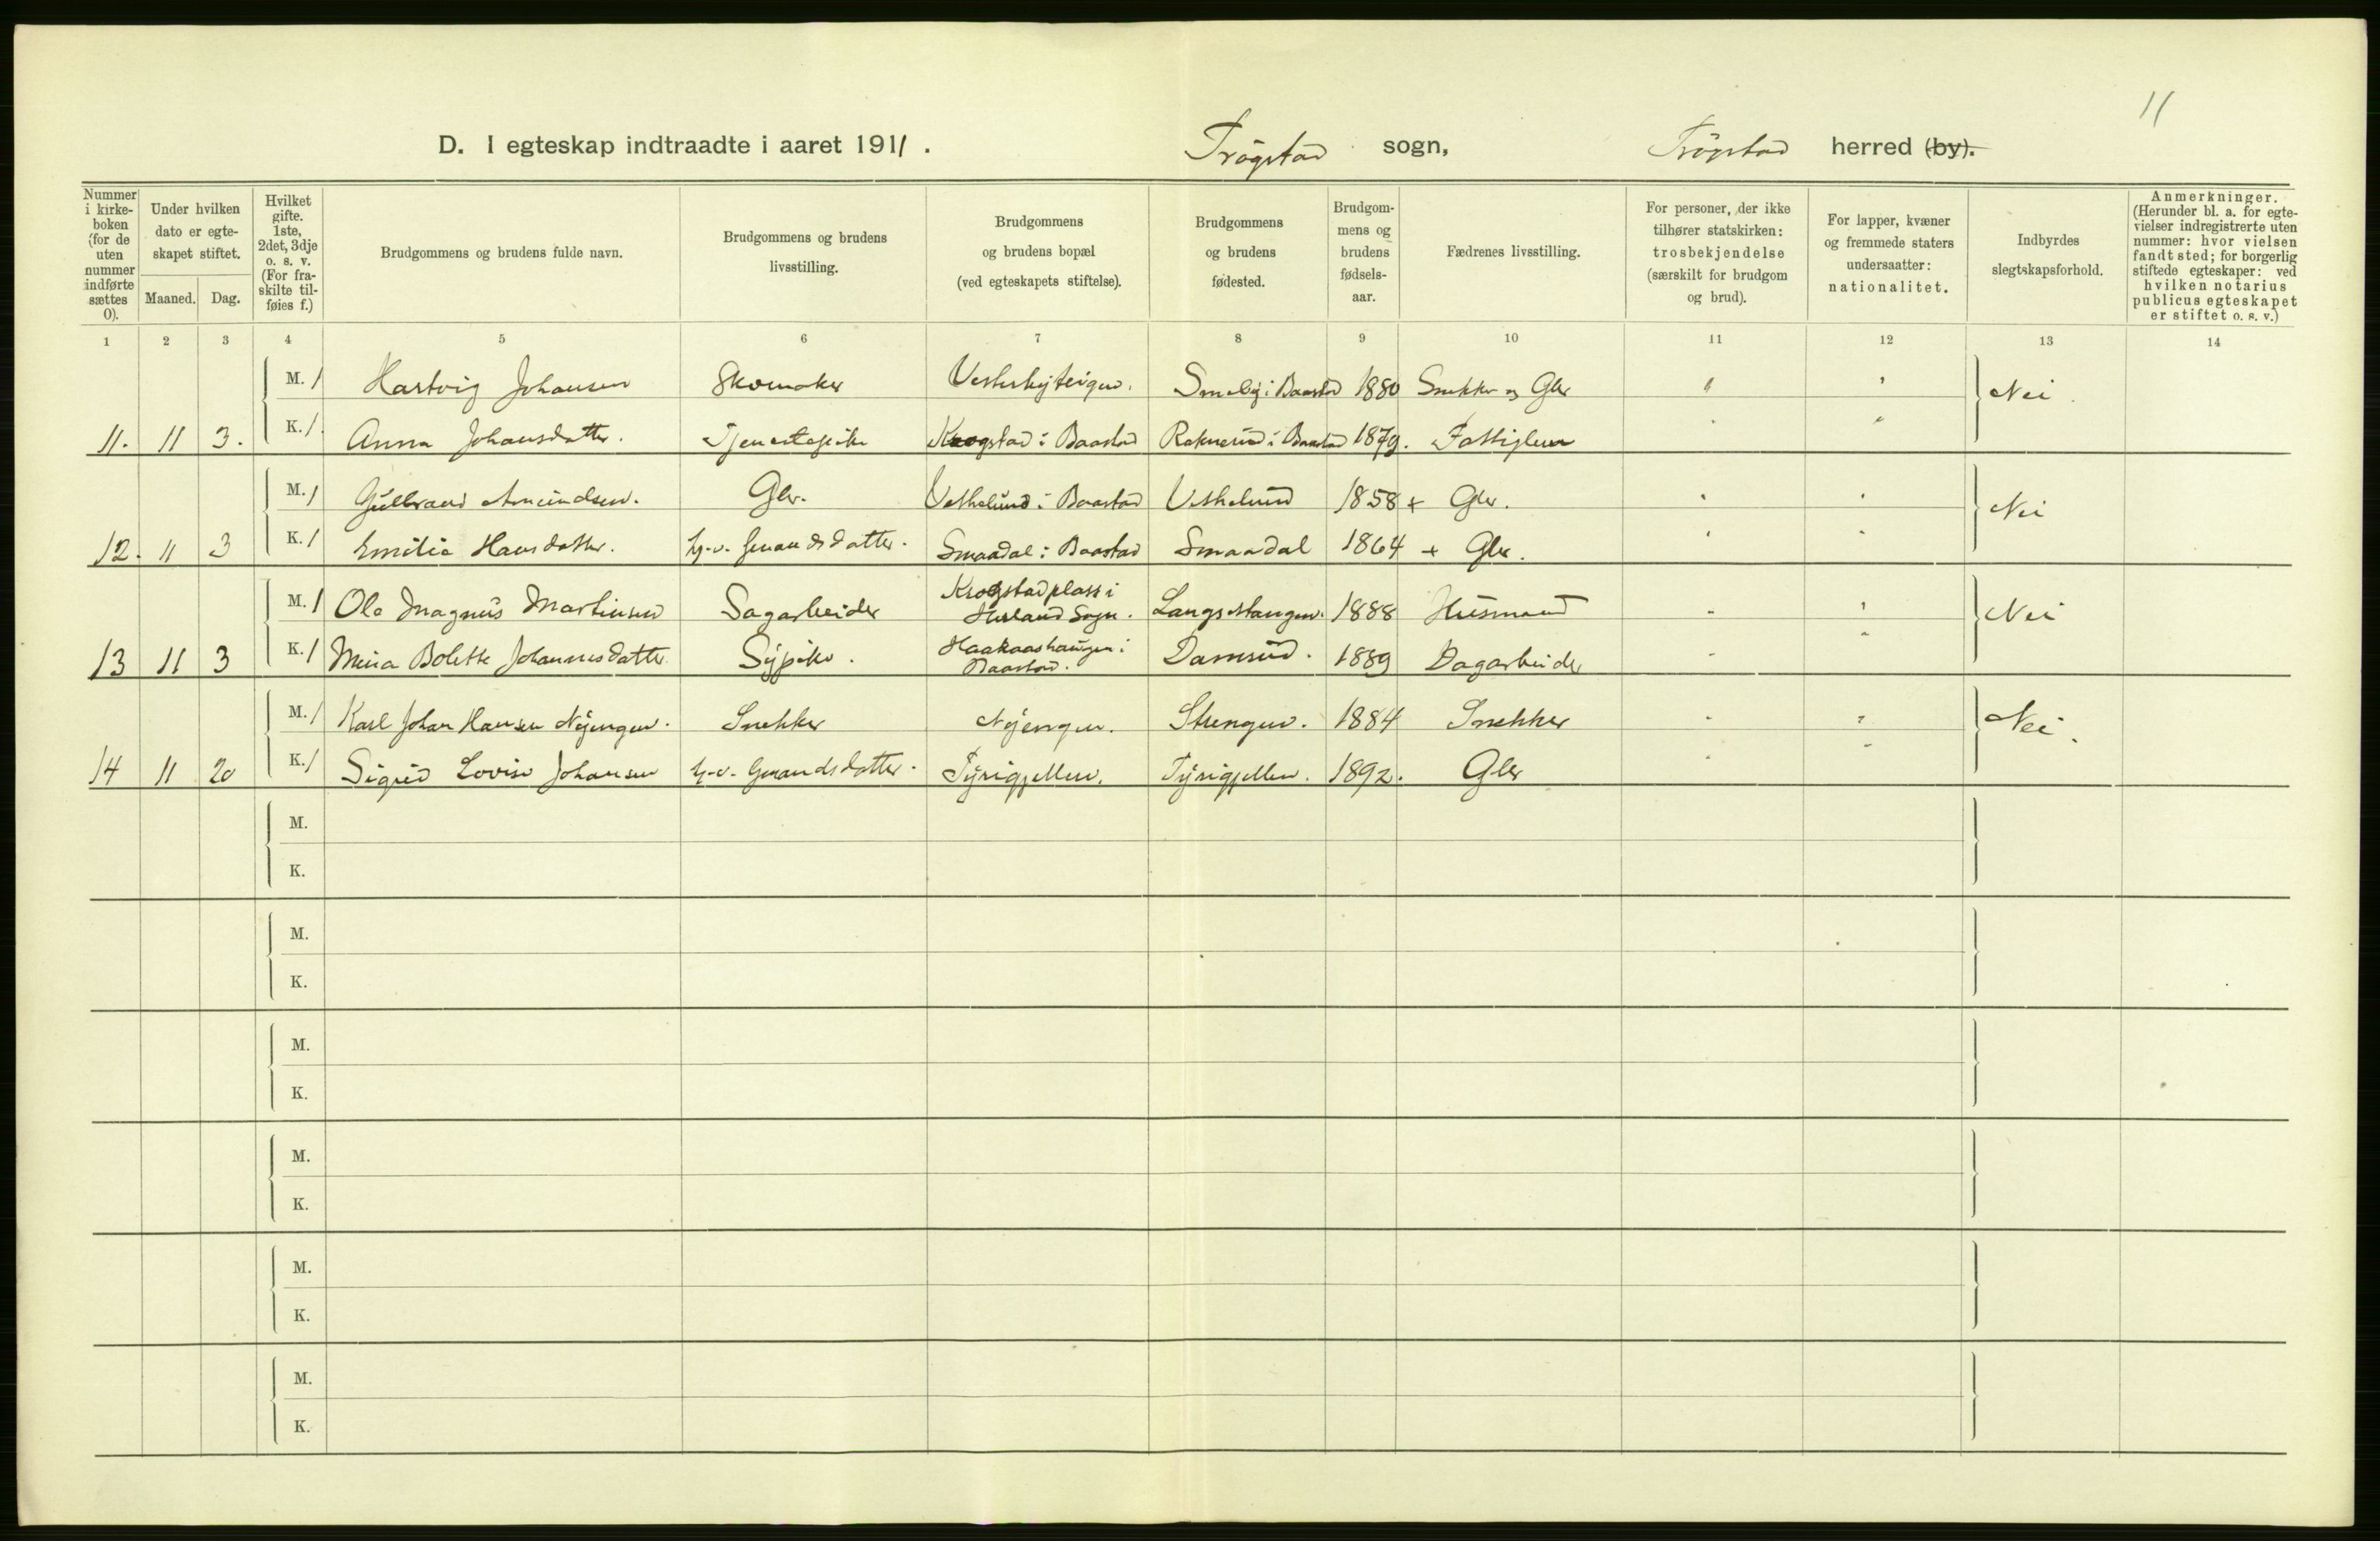 11
D. I egteskap indtraadte i aaret 1911. Trögstad sogn, Trögstad herred (by).
Nummer i kirke-boken (for de uten nummer indførte sættes 0).
Under hvilken dato er egte-skapet stiftet.
Maaned. Dag.
Hvilket gifte. 1ste, 2det, 3dje o. s. v. (For fra-skilte til-føies f.)
Brudgommens og brudens fulde navn.
Brudgommens og brudens livsstilling.
Brudgommens og brudens bopæl (ved egteskapets stiftelse).
Brudgommens og brudens fødested.
Brudgom-mens og brudens fødsels-aar.
Fædrenes livsstilling.
For personer, der ikke tilhører statskirken: trosbekjendelse (særskilt for brudgom og brud).
For lapper, kvæner og fremmede staters undersaatter: nationalitet.
Indbyrdes slegtskapsforhold.
Anmerkninger. (Herunder bl. a. for egte-vielser indregistrerte uten nummer: hvor vielsen fandt sted; for borgerlig stiftede egteskaper: ved hvilken notarius publicus egteskapet er stiftet o. s. v.)
1 2 3 4 5 6 7 8 9 10 11 12 13 14
M. 1 Hartvig Johansen Skomaker 1880 Snekker og Gbr " " Nei.
11. 11 3. K. 1. Anna Johansdatter. Tjenestepike Krogstad i Baastad Raknerud i Baastad 1879. Fattiglem " "
M. 1 Gulbrand Amundsen. Gbr. Vestselund i Baastad 1858 + Gbr. " " Nei
12. 11 3 K. 1 Emilie Hansdatter. G.-v. Gmandsdatter. Smaadal i Baastad Smaadal 1864 + Gbr. " "
M. 1 Ola Magnus Martinsen Sagarbeider Krogstadplass i Herland Sogn. Langsetangen. 1888 Husmand " " Nei
13 11 3 K. 1 Mina Bolette Johannesdatter Sypike. Haakaashaugen i Baastad. Damrud. 1889 Dagarbeider " "
M. 1 Karl Johan Hansen Nyengen. Snekker Nyengen. Strengen. 1884 Snekker " " Nei.
14 11 20 K. 1 Sigrid Lovise Johansen G.-v. Gmandsdatter. Tyrigjellen. Tyrigjellen. 1892. Gbr " "
M.
K.
M.
K.
M.
K.
M.
K.
M.
K.
M.
K.